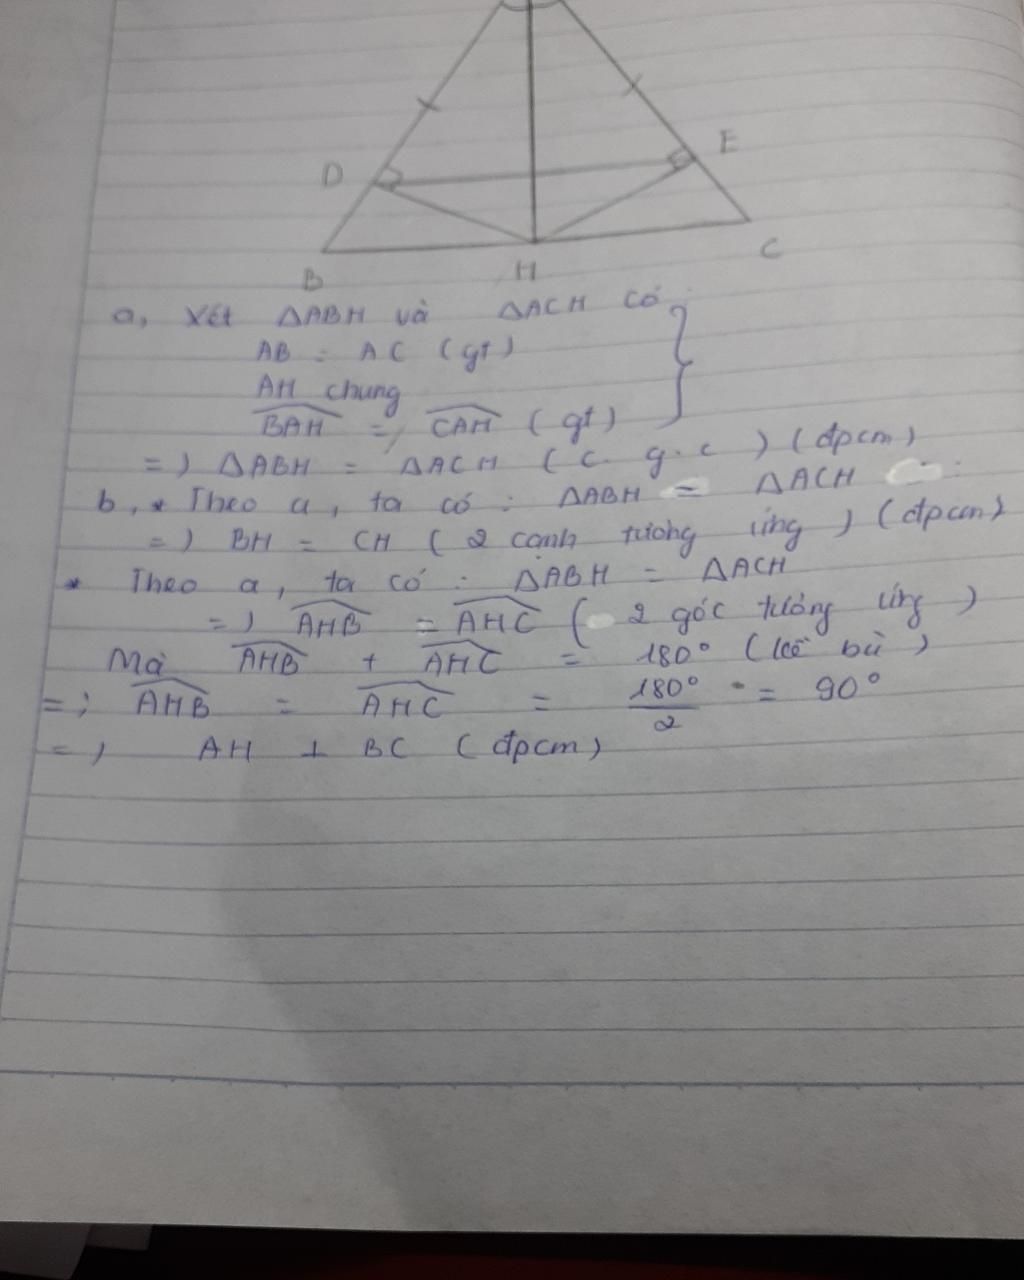 D
E
B
H
C
a, Xét ΔABH và ΔACH có
AB = AC (gt)
AH chung
BAH = CAH (gt)
=) ΔABH = ΔACH (c.g.c) (đpcm)
b, * Theo a, ta có : ΔABH = ΔACH
=) BH = CH (2 cạnh tương ứng) (đpcm)
* Theo a, ta có : ΔABH = ΔACH
=) AHB = AHC (2 góc tương ứng)
Mà AHB + AHC = 180° (kề bù)
=) AHB = AHC = 180°/2 = 90°
=) AH ⊥ BC (đpcm)